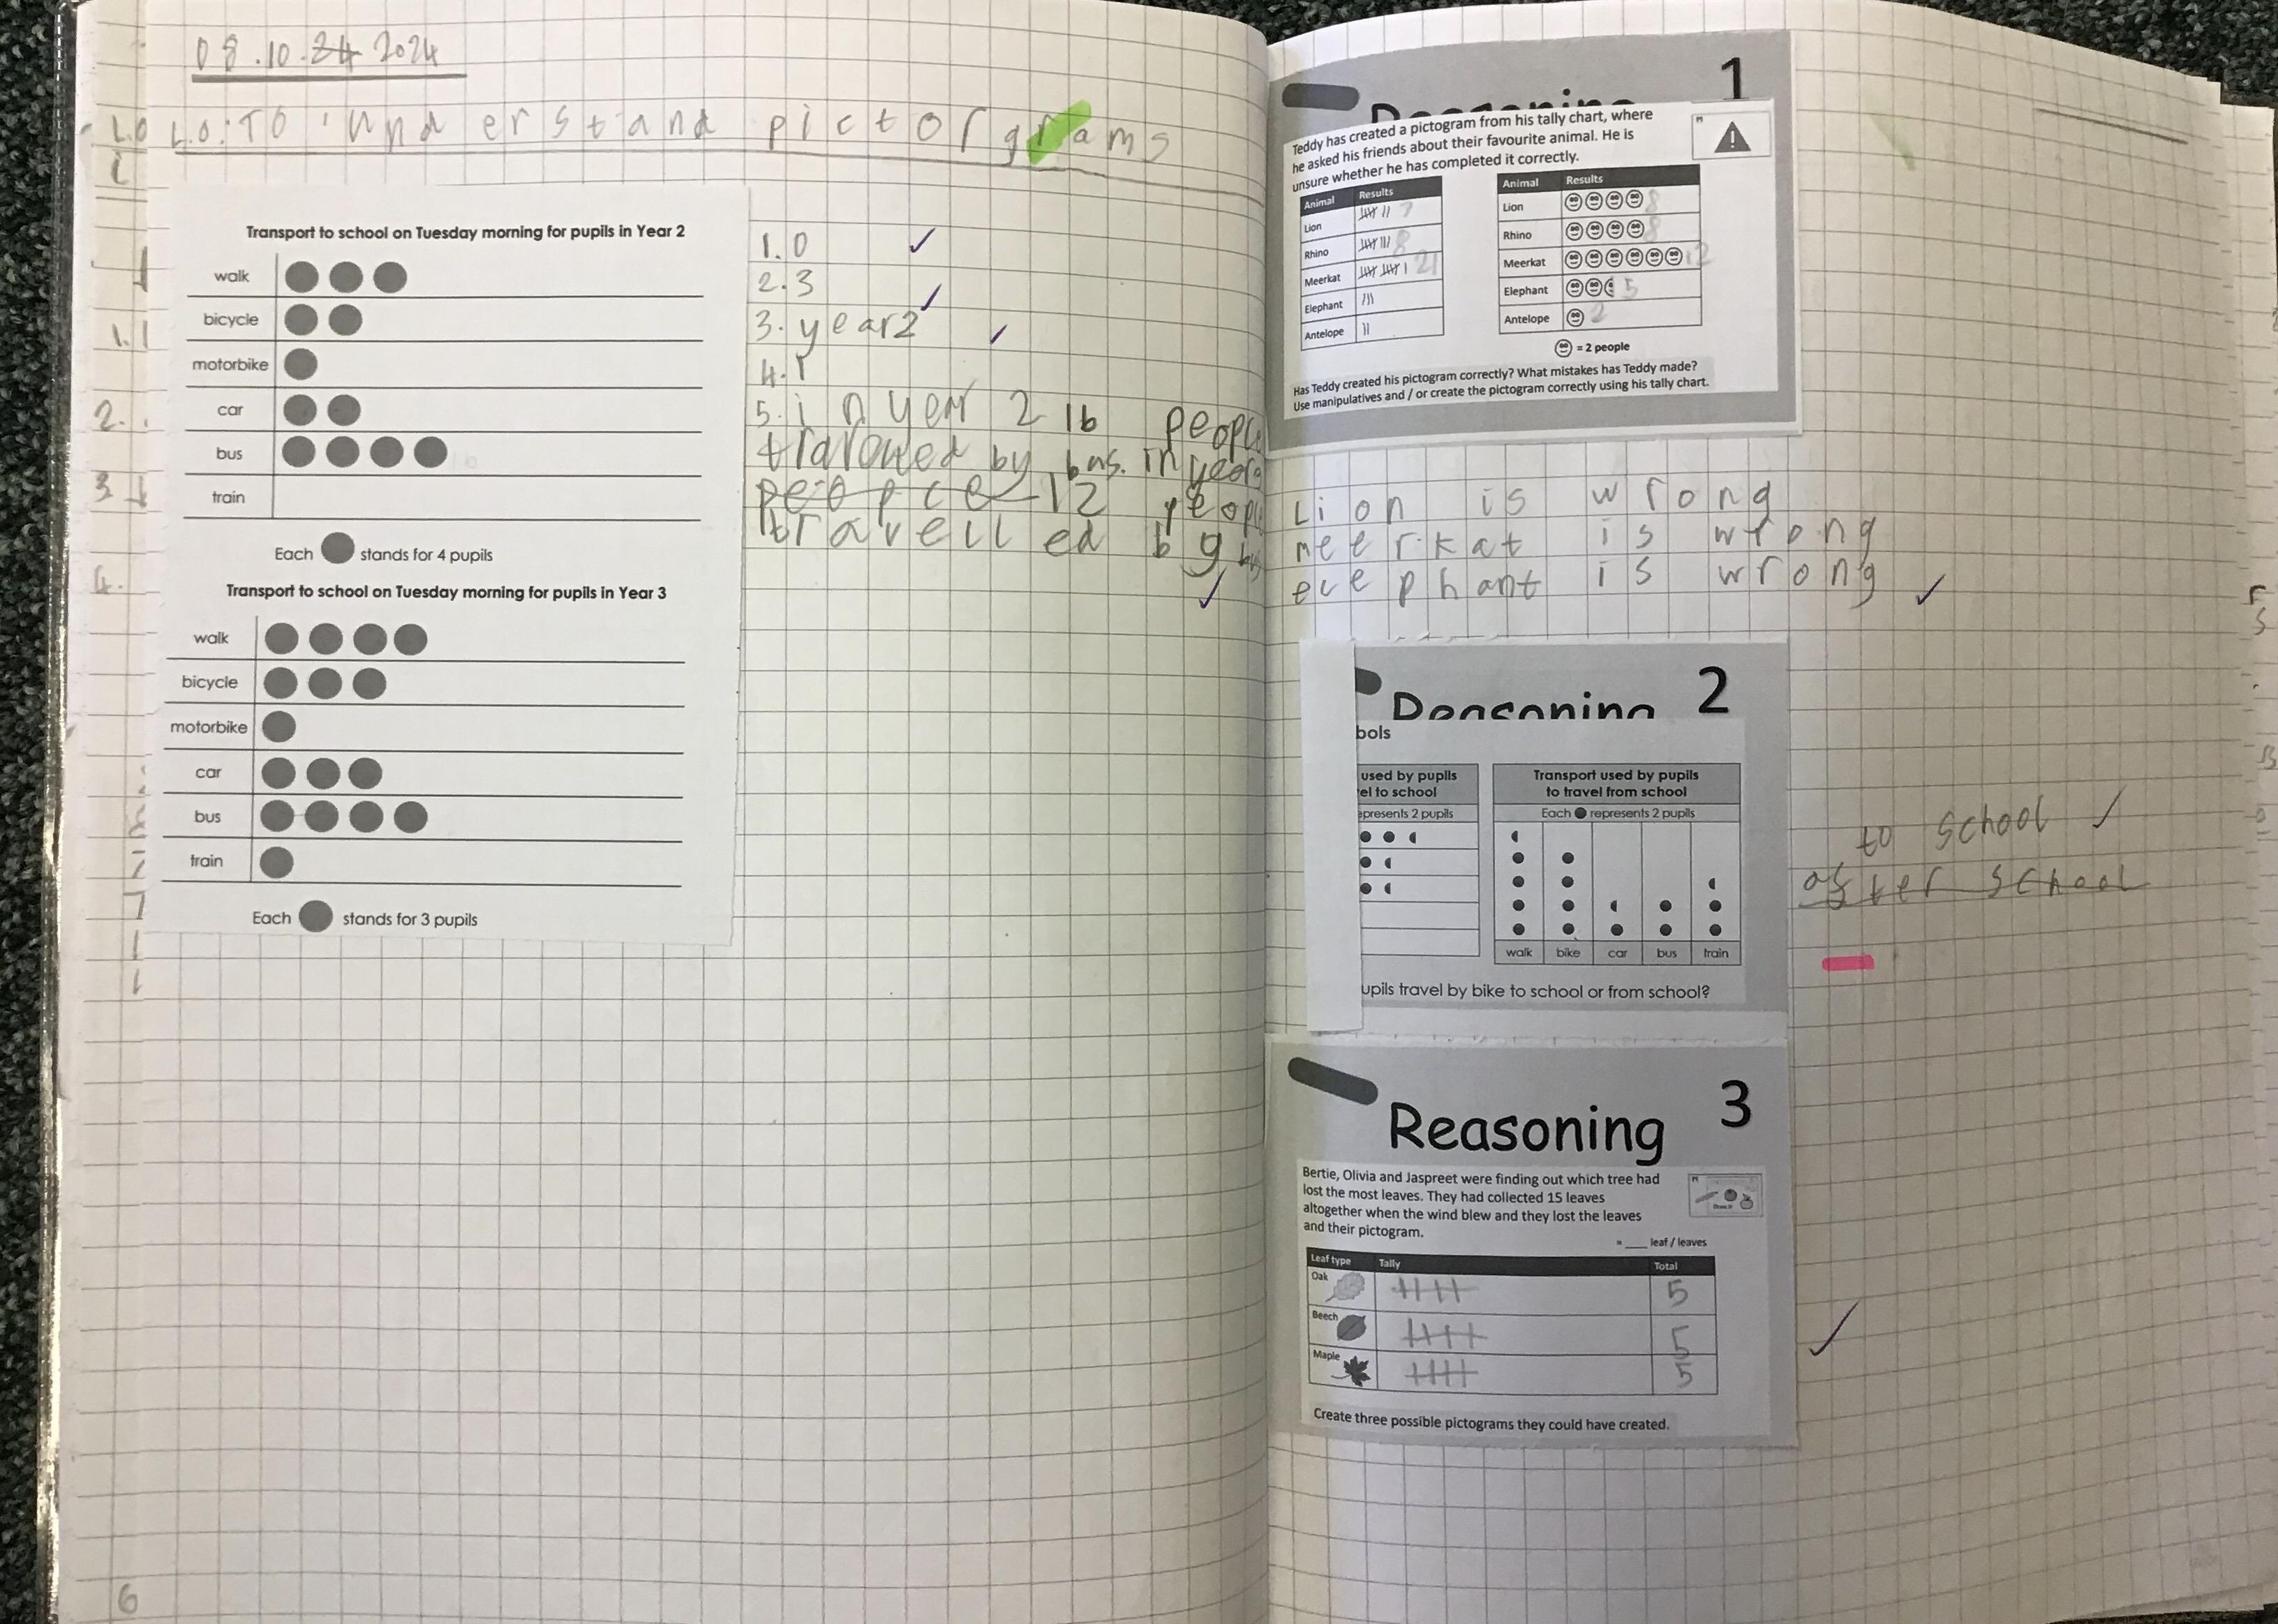 08.10.24 2024
L.O L.O: TO understand pictorgrams
Transport to school on Tuesday morning for pupils in Year 2
walk
bicycle
motorbike
car
bus
train
Each stands for 4 pupils
Transport to school on Tuesday morning for pupils in Year 3
walk
bicycle
motorbike
car
bus
train
Each stands for 3 pupils
1. 0
2. 3
3. year 2
4. 1
5. in year 2 16 people
by bus. in year
people 12 people
travelled by bus
1.
2.
3
4.
6
1
Reasoning
Teddy has created a pictogram from his tally chart, where
he asked his friends about their favourite animal. He is
unsure whether he has completed it correctly.
Animal Results
Lion 7
Rhino 8
Meerkat 21
Elephant
Antelope
Animal Results
Lion 8
Rhino 8
Meerkat 12
Elephant 5
Antelope 2
= 2 people
Has Teddy created his pictogram correctly? What mistakes has Teddy made?
Use manipulatives and / or create the pictogram correctly using his tally chart.
Lion is wrong
meerkat is wrong
elephant is wrong
Reasoning 2
bols
used by pupils
el to school
epresents 2 pupils
Transport used by pupils
to travel from school
Each represents 2 pupils
walk bike car bus train
upils travel by bike to school or from school?
to school
after school
Reasoning 3
Bertie, Olivia and Jaspreet were finding out which tree had
lost the most leaves. They had collected 15 leaves
altogether when the wind blew and they lost the leaves
and their pictogram.
= ___ leaf / leaves
Leaf type Tally Total
Oak 5
Beech 5
Maple 5
Create three possible pictograms they could have created.